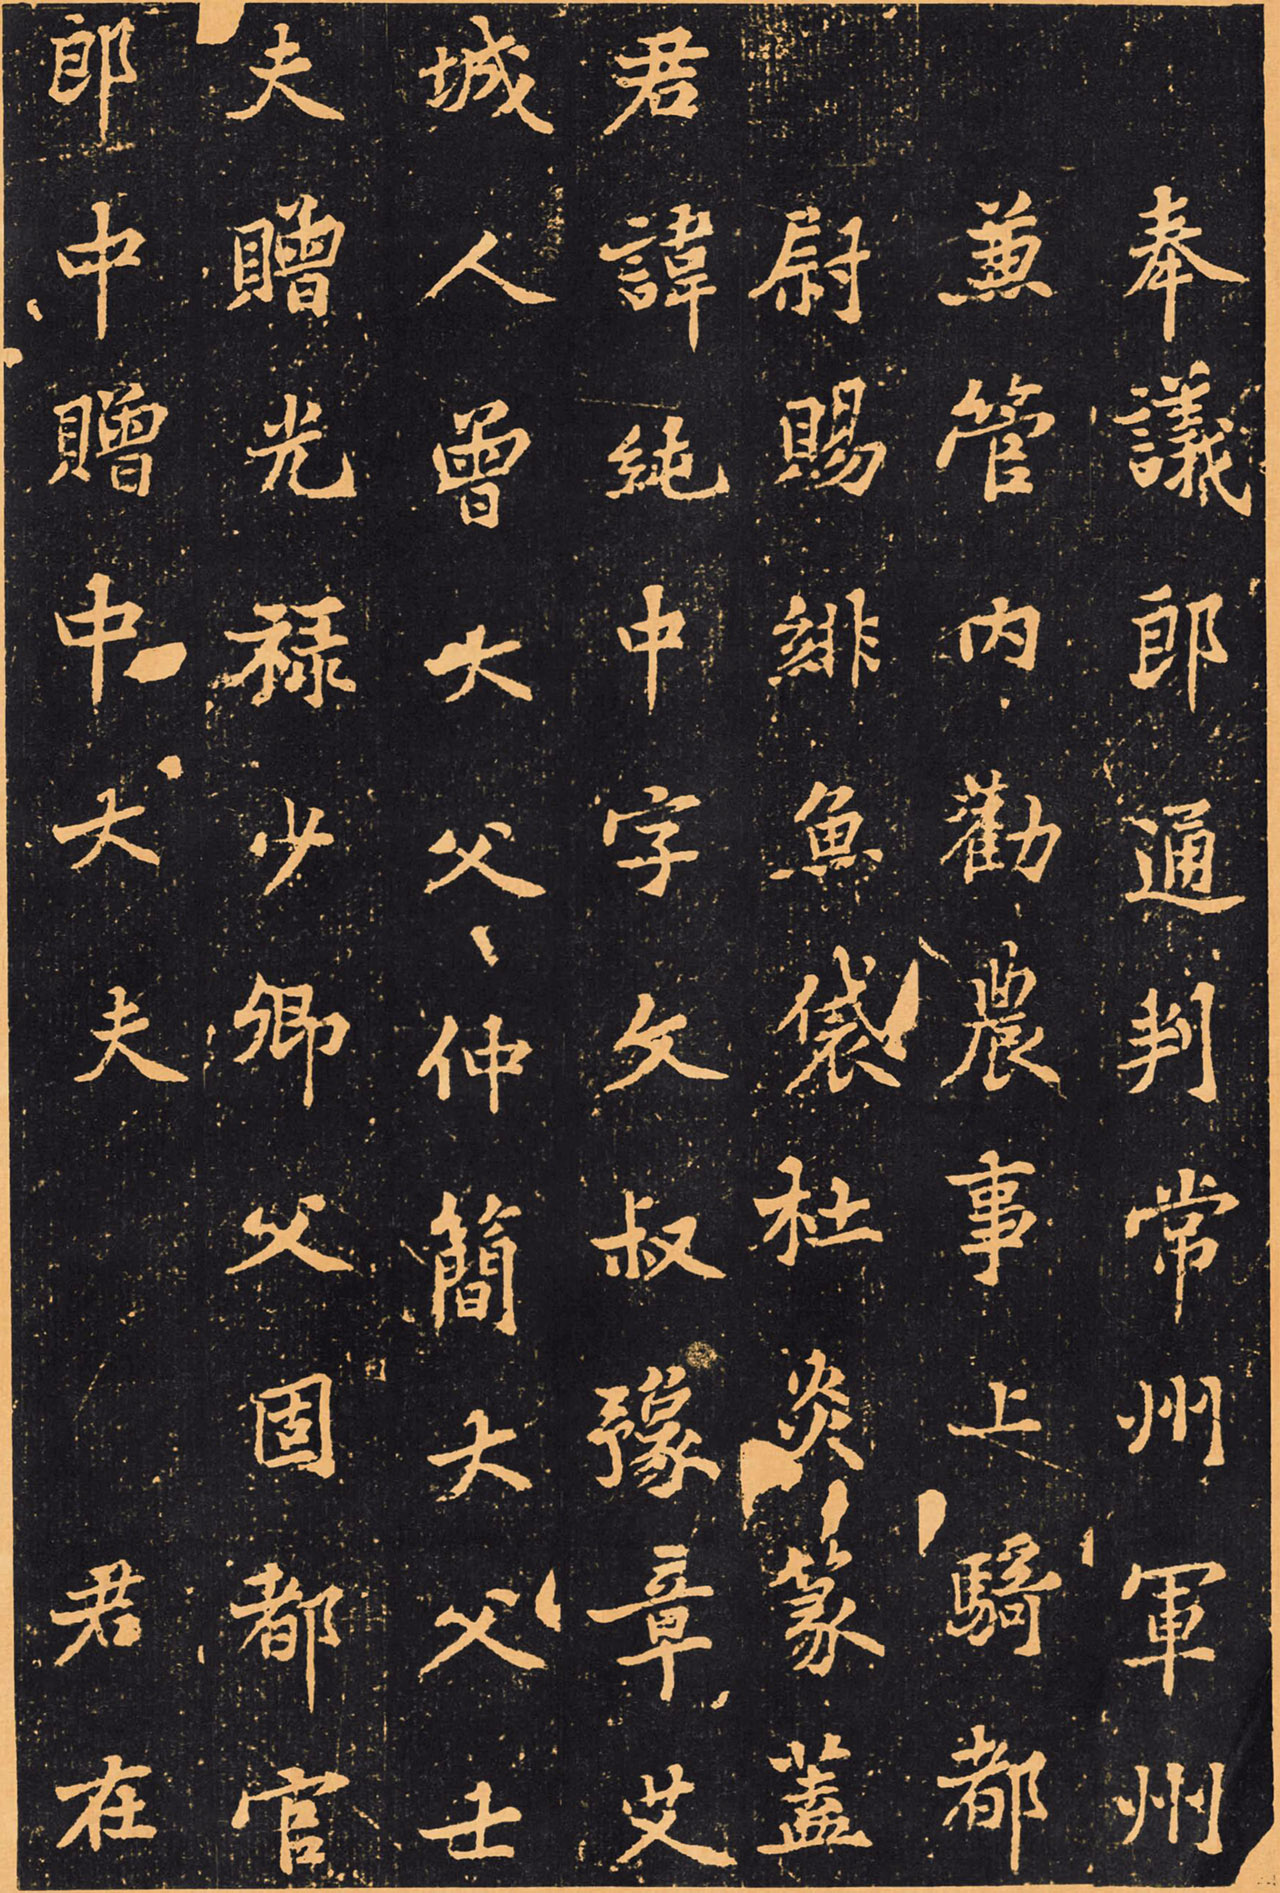 奉議郎通判常州軍州
兼管內勸農事上騎都
尉賜緋魚袋杜炎篆蓋
君諱純中字文叔豫章艾
城人曾大父仲簡大父士
夫贈光祿少卿父固都官
郎中贈中大夫君在